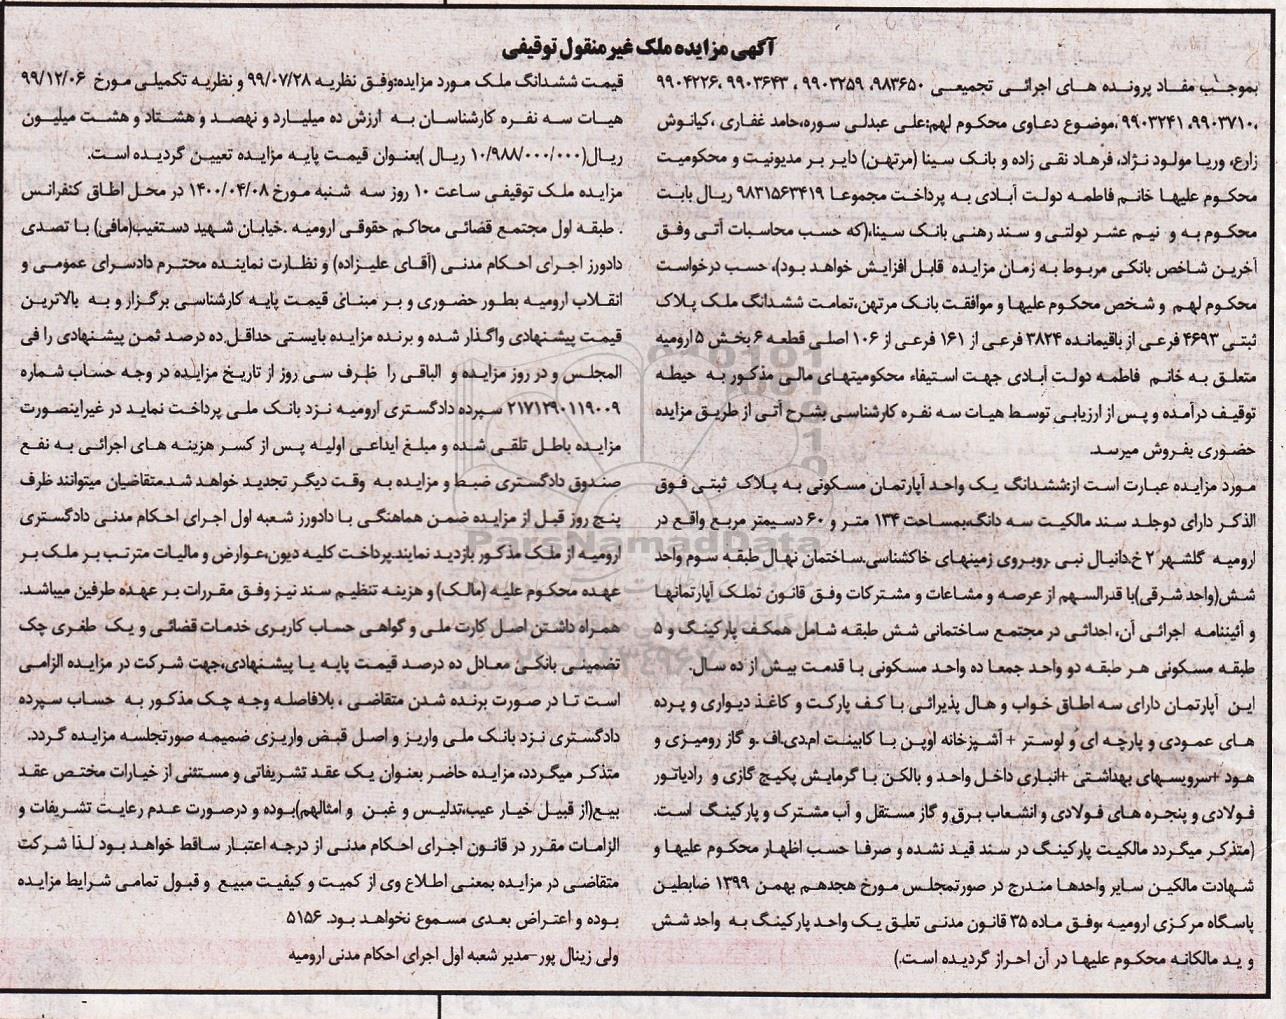 آگهی مزایده ملک غیر منقول توقیفی
بموجب مفاد پرونده های اجرائی تجمیعی ۹۸۳۶۵۰، ۹۹۰۳۲۵۹ ، ۹۹۰۳۶۴۳ ،۹۹۰۴۲۲۶
،۹۹۰۳۷۱۰، ۹۹۰۳۲۴۱ ،موضوع دعاوی محکوم لهم:علی عبدلی سوره،حامد غفاری ،کیانوش
زارع، وریا مولود نژاد، فرهاد نقی زاده و بانک سینا (مرتهن) دایر بر مدیونیت و محکومیت
محکوم علیها خانم فاطمه دولت آبادی به پرداخت مجموعا ۹۸۳۱۵۶۳۴۱۹ ریال بابت
محکوم به و نیم عشر دولتی و سند رهنی بانک سینا،(که حسب محاسبات آتی وفق
آخرین شاخص بانکی مربوط به زمان مزایده قابل افزایش خواهد بود)، حسب درخواست
محکوم لهم و شخص محکوم علیها و موافقت بانک مرتهن،تمامت ششدانگ ملک پلاک
ثبتی ۴۶۹۳ فرعی از باقیمانده ۳۸۲۴ فرعی از ۱۶۱ فرعی از ۱۰۶ اصلی قطعه ۶ بخش ۵ ارومیه
متعلق به خانم فاطمه دولت آبادی جهت استیفاء محکومیتهای مالی مذکور به حیطه
توقیف درآمده و پس از ارزیابی توسط هیات سه نفره کارشناسی بشرح آتی از طریق مزایده
حضوری بفروش میرسد.
مورد مزایده عبارت است از:ششدانگ یک واحد آپارتمان مسکونی به پلاک ثبتی فوق
الذکر دارای دوجلد سند مالکیت سه دانگ،بمساحت ۱۳۴ متر و ۶۰ دسیمتر مربع واقع در
ارومیه گلشهر ۲ خ.دانیال نبی .روبروی زمینهای خاکشناسی.ساختمان نهال طبقه سوم واحد
شش(واحد شرقی)با قدرالسهم از عرصه و مشاعات و مشترکات وفق قانون تملک آپارتمانها
و آئیننامه اجرائی آن، احداثی در مجتمع ساختمانی شش طبقه شامل همکف پارکینگ و ۵
طبقه مسکونی هر طبقه دو واحد جمعا ده واحد مسکونی با قدمت بیش از ده سال.
این آپارتمان دارای سه اطاق خواب و هال پذیرائی با کف پارکت و کاغذ دیواری و پرده
های عمودی و پارچه ای و لوستر + آشپزخانه اوپن با کابینت ام.دی.اف .و گاز رومیزی و
هود +سرویسهای بهداشتی +انباری داخل واحد و بالکن با گرمایش پکیج گازی و رادیاتور
فولادی و پنجره های فولادی و انشعاب برق و گاز مستقل و آب مشترک و پارکینگ است.
(متذکر میگردد مالکیت پارکینگ در سند قید نشده و صرفا حسب اظهار محکوم علیها و
شهادت مالکین سایر واحدها مندرج در صورتمجلس مورخ هجدهم بهمن ۱۳۹۹ ضابطین
پاسگاه مرکزی ارومیه ،وفق ماده ۳۵ قانون مدنی تعلق یک واحد پارکینگ به واحد شش
و ید مالکانه محکوم علیها در آن احراز گردیده است.)
قیمت ششدانگ ملک مورد مزایده:وفق نظریه ۹۹/۰۷/۲۸ و نظریه تکمیلی مورخ ۹۹/۱۲/۰۶
هیات سه نفره کارشناسان به ارزش ده میلیارد و نهصد و هشتاد و هشت میلیون
ریال(۱۰/۹۸۸/۰۰۰/۰۰۰ ریال )بعنوان قیمت پایه مزایده تعیین گردیده است.
مزایده ملک توقیفی ساعت ۱۰ روز سه شنبه مورخ ۱۴۰۰/۰۴/۰۸ در محل اطاق کنفرانس
. طبقه اول مجتمع قضائی محاکم حقوقی ارومیه .خیابان شهید دستغیب(مافی) با تصدی
دادورز اجرای احکام مدنی (آقای علیزاده) و نظارت نماینده محترم دادسرای عمومی و
انقلاب ارومیه بطور حضوری و بر مبنای قیمت پایه کارشناسی برگزار و به بالاترین
قیمت پیشنهادی واگذار شده و برنده مزایده بایستی حداقل ده درصد ثمن پیشنهادی را فی
المجلس و در روز مزایده و الباقی را ظرف سی روز از تاریخ مزایده در وجه حساب شماره
۲۱۷۱۲۹۰۱۱۹۰۰۹ سپرده دادگستری ارومیه نزد بانک ملی پرداخت نماید در غیراینصورت
مزایده باطل تلقی شده و مبلغ ایداعی اولیه پس از کسر هزینه های اجرائی به نفع
صندوق دادگستری ضبط و مزایده به وقت دیگر تجدید خواهد شد.متقاضیان میتوانند ظرف
پنج روز قبل از مزایده ضمن هماهنگی با دادورز شعبه اول اجرای احکام مدنی دادگستری
ارومیه از ملک مذکور بازدید نمایند.پرداخت کلیه دیون،عوارض و مالیات مترتب بر ملک بر
عهده محکوم علیه (مالک) و هزینه تنظیم سند نیز وفق مقررات بر عهده طرفین میباشد.
همراه داشتن اصل کارت ملی و گواهی حساب کاربری خدمات قضائی و یک طغری چک
تضمینی بانکی معادل ده درصد قیمت پایه یا پیشنهادی،جهت شرکت در مزایده الزامی
است تا در صورت برنده شدن متقاضی ، بلافاصله وجه چک مذکور به حساب سپرده
دادگستری نزد بانک ملی واریز و اصل قبض واریزی ضمیمه صورتجلسه مزایده گردد.
متذکر میگردد، مزایده حاضر بعنوان یک عقد تشریفاتی و مستثنی از خیارات مختص عقد
بیع(از قبیل خیار عیب،تدلیس و غبن و امثالهم)بوده و درصورت عدم رعایت تشریفات و
الزامات مقرر در قانون اجرای احکام مدنی از درجه اعتبار ساقط خواهد بود لذا شرکت
متقاضی در مزایده بمعنی اطلاع وی از کمیت و کیفیت مبیع و قبول تمامی شرایط مزایده
بوده و اعتراض بعدی مسموع نخواهد بود. ۵۱۵۶
ولی زینال پور-مدیر شعبه اول اجرای احکام مدنی ارومیه
ParsNamadData